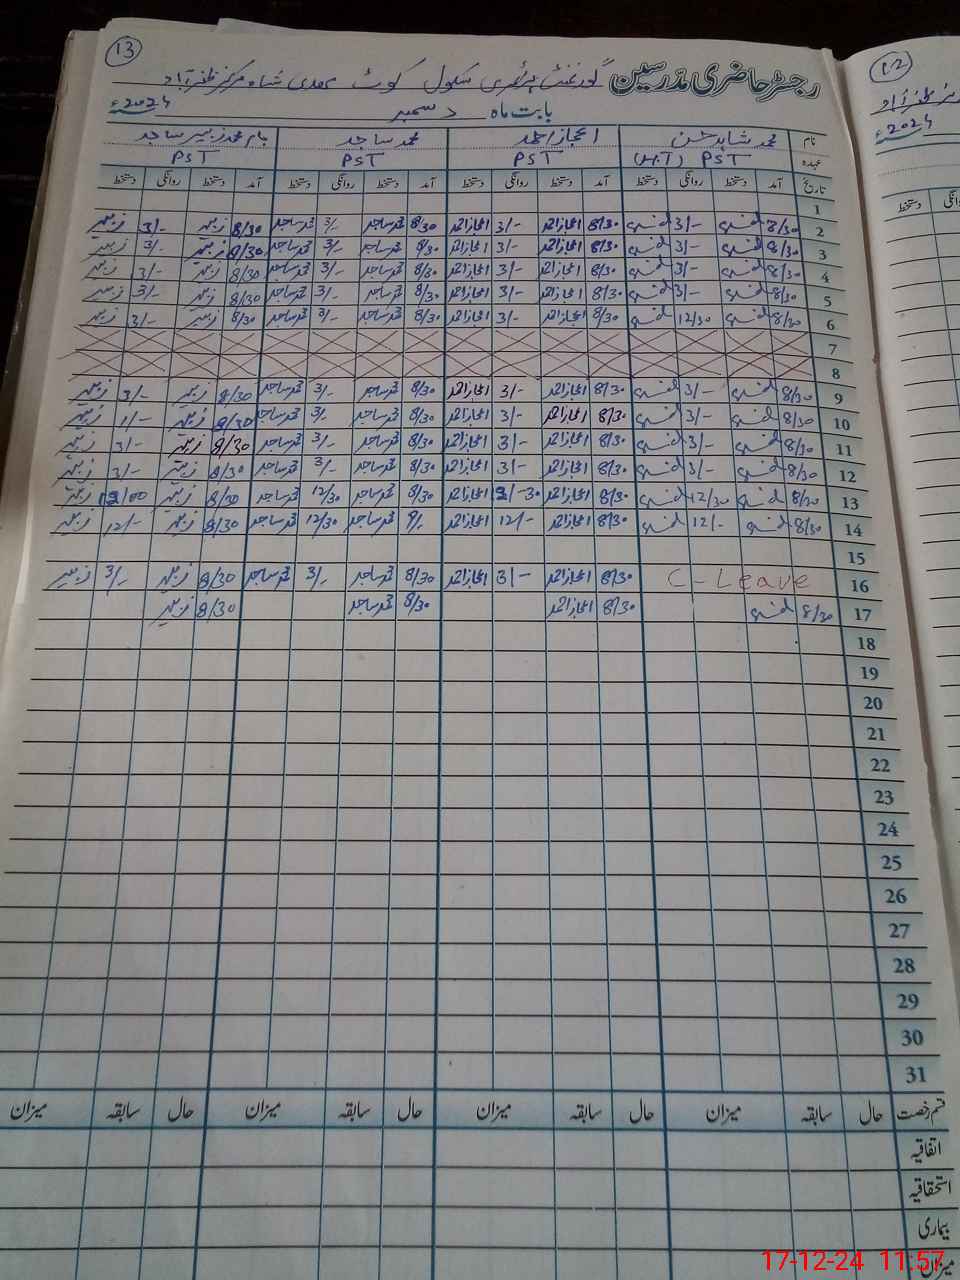 13
رجسٹر حاضری مدرسین گورنمنٹ پرائمری سکول کوٹ محمدی شاہ مرکز ظفرآباد
بابت ماہ دسمبر 2024ء
نام محمد شاہد حسن اعجاز احمد محمد ساجد محمد زبیر ساجد
عہدہ PST (H.T) PST PST PST
تاریخ آمد دستخط روانگی دستخط آمد دستخط روانگی دستخط آمد دستخط روانگی دستخط آمد دستخط روانگی دستخط
1
2 8/30 3/- 8/30 اعجاز احمد 3/- اعجاز احمد 8/30 محمد ساجد 3/- محمد ساجد 8/30 زبیر 3/- زبیر
3 8/30 3/- 8/30 اعجاز احمد 3/- اعجاز احمد 8/30 محمد ساجد 3/- محمد ساجد 8/30 زبیر 3/- زبیر
4 8/30 3/- 8/30 اعجاز احمد 3/- اعجاز احمد 8/30 محمد ساجد 3/- محمد ساجد 8/30 زبیر 3/- زبیر
5 8/30 3/- 8/30 اعجاز احمد 3/- اعجاز احمد 8/30 محمد ساجد 3/- محمد ساجد 8/30 زبیر 3/- زبیر
6 8/30 12/30 8/30 اعجاز احمد 3/- اعجاز احمد 8/30 محمد ساجد 3/- محمد ساجد 8/30 زبیر 3/- زبیر
7
8
9 8/30 3/- 8/30 اعجاز احمد 3/- اعجاز احمد 8/30 محمد ساجد 3/- محمد ساجد 8/30 زبیر 3/- زبیر
10 8/30 3/- 8/30 اعجاز احمد 3/- اعجاز احمد 8/30 محمد ساجد 3/- محمد ساجد 8/30 زبیر 1/- زبیر
11 8/30 3/- 8/30 اعجاز احمد 3/- اعجاز احمد 8/30 محمد ساجد 3/- محمد ساجد 8/30 زبیر 3/- زبیر
12 8/30 3/- 8/30 اعجاز احمد 3/- اعجاز احمد 8/30 محمد ساجد 3/- محمد ساجد 8/30 زبیر 3/- زبیر
13 8/30 12/30 8/30 اعجاز احمد اعجاز احمد 8/30 محمد ساجد 12/30 محمد ساجد 8/30 زبیر زبیر
14 8/30 12/- 8/30 اعجاز احمد 12/- اعجاز احمد 9/- محمد ساجد 12/30 محمد ساجد 8/30 زبیر 12/- زبیر
15
16 C-Leave 8/30 اعجاز احمد 3/- اعجاز احمد 8/30 محمد ساجد 3/- محمد ساجد 8/30 زبیر 3/- زبیر
17 8/30 8/30 اعجاز احمد 8/30 محمد ساجد 8/30 زبیر
18
19
20
21
22
23
24
25
26
27
28
29
30
31
قسم رخصت حال سابقہ میزان حال سابقہ میزان حال سابقہ میزان حال سابقہ میزان
اتفاقیہ
استحقاقیہ
بیماری
میزان
12
2024ء
روانگی دستخط
17-12-24 11:57